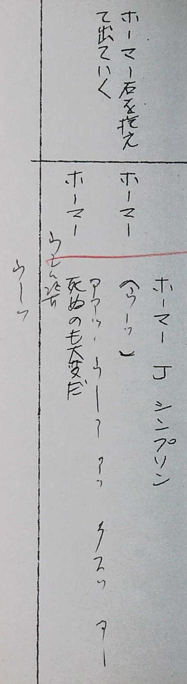 ホーマー石を抱え
て出ていく
ホーマー J シンプソン
ホーマー (ウーッ)
ホーマー アアッ、ウーアアッ クスッ アー
死ぬのも大変だ
ウーッ